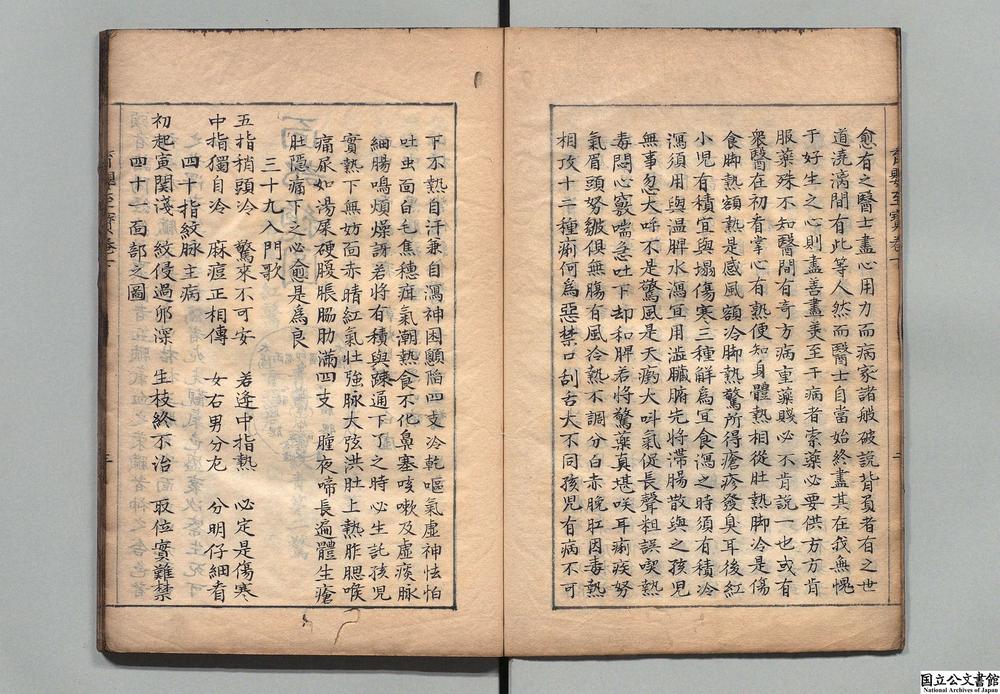 愈有之醫士盡心用力而病家諸般破説背負者有之世
道澆漓間有此等人然而醫士自當始終盡其在我無愧
于好生之心則盡善盡美至于病者索藥必要供方方肯
服藥殊不知醫間有奇方病重藥賤必不肯説一也或有
衆醫在初看掌心有熱便知身體熱相從肚熱脚冷是傷
食脚熱額熱是感風額冷脚熱驚所得瘡疹發臭耳後紅
小児有積宜與塌傷寒三種解爲宜食瀉之時須有積冷
瀉須用與温脾水瀉宜用滋臟腑先將滯腸散與之孩児
無事忽大呼不是驚風是天瘹大呌氣促長聲粗誤喫熱
毒悶心竅喘急吐下却和脾若將驚藥真堪咲耳痢疾努
氣眉頭努皺俱無腸有風冷熱不調分白赤晚肛因毒熱
相攻十二種痢何爲惡禁口刮舌大不同孩児有病不可
下不熱自汗兼自瀉神困顖陷四支冷乾嘔氣虚神怯怕
吐虫面白毛焦穗疳氣潮熱食不化鼻塞咳嗽及虚痰脉
細腸鳴煩燥訝若將有積與踈通下了之時必生詫孩児
實熱下無妨面赤晴紅氣壮強脉大弦洪肚上熱胙腮喉
痛尿如湯屎硬腹脹脇肋滿四支 膧夜啼長遍體生瘡
肚隠痛下之必愈是爲良
三十九入門歌
五指梢頭冷 驚來不可安 若逢中指熱 必定是傷寒
中指獨自冷 麻痘正相傳 女右男分尤 分明仔細看
四十指紋脉主病
初起寅関淺 紋侵過夘深 生枝終不治 取位實難禁
四十一面部之圖
国立公文書館
National Archives of Japan